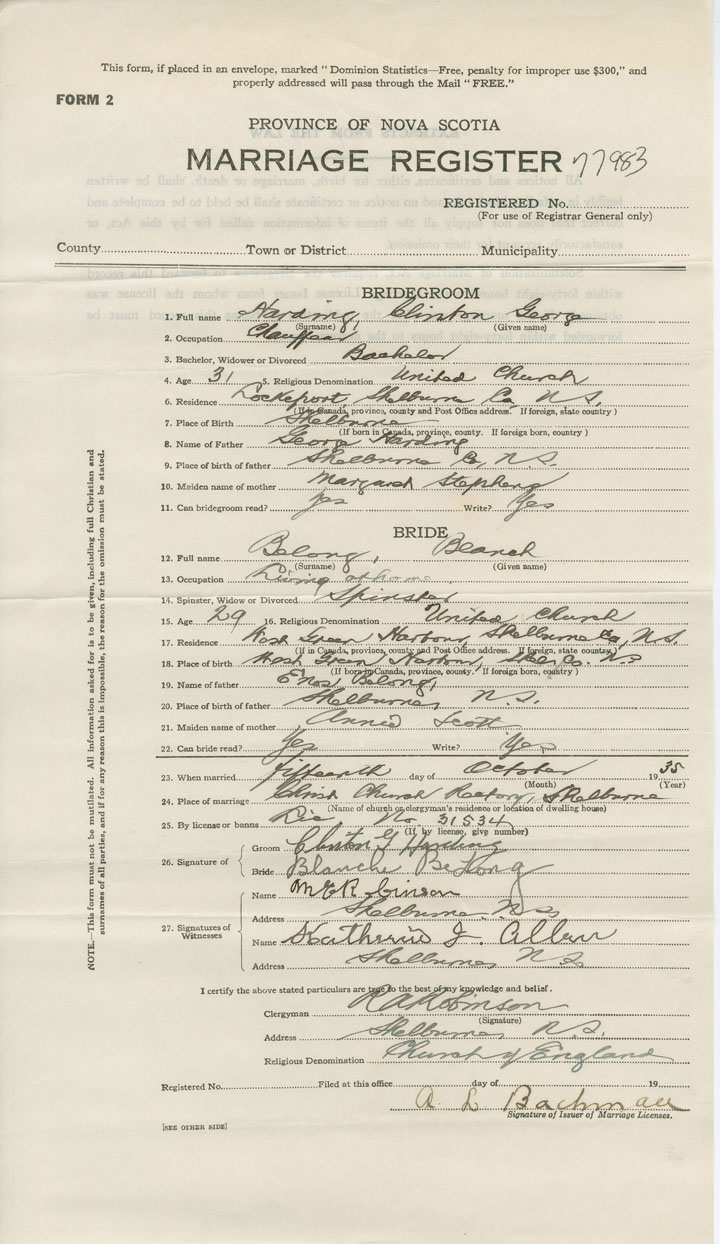 This form, if placed in an envelope, marked "Dominion Statistics—Free, penalty for improper use $300," and
properly addressed will pass through the Mail "FREE."
FORM 2
PROVINCE OF NOVA SCOTIA
MARRIAGE REGISTER 77983
REGISTERED No.
(For use of Registrar General only)
County Town or District Municipality
BRIDEGROOM
1. Full name Harding, Clinton George
(Surname) (Given name)
2. Occupation Chauffeur
3. Bachelor, Widower or Divorced Bachelor
4. Age 31 5. Religious Denomination United Church
6. Residence Lockeport, Shelburne Co, N.S.
(If in Canada, province, county and Post Office address. If foreign, state country)
7. Place of Birth Shelburne
(If born in Canada, province, county. If foreign born, country)
8. Name of Father George Harding
9. Place of birth of father Shelburne Co, N.S.
10. Maiden name of mother Margaret Stephens
11. Can bridegroom read? Yes Write? Yes
BRIDE
12. Full name Belong, Blanch
(Surname) (Given name)
13. Occupation Living at home
14. Spinster, Widow or Divorced Spinster
15. Age 29 16. Religious Denomination United Church
17. Residence West Green Harbour, Shelburne Co, N.S.
(If in Canada, province, county and Post Office address. If foreign, state country)
18. Place of birth West Green Harbour, Shel. Co. N.S
(If born in Canada, province, county. If foreign born, country)
19. Name of father Enos Belong,
20. Place of birth of father Shelburne, N.S.
21. Maiden name of mother Annie Scott
22. Can bride read? Yes Write? Yes
23. When married fifteenth day of October 1935
(Month) (Year)
24. Place of marriage Church Rectory, Shelburne
(Name of church or clergyman's residence or location of dwelling house)
25. By license or banns Lic No 31534
(If by license, give number)
26. Signature of
Groom Clinton G Harding
Bride Blanche BeLong
27. Signatures of Witnesses
Name M E Robinson
Address Shelburne N.S.
Name Katherine J. Allen
Address Shelburne N S
I certify the above stated particulars are true to the best of my knowledge and belief.
Clergyman R A Robinson
(Signature)
Address Shelburne, N.S.
Religious Denomination Church of England
Registered No. Filed at this office day of 19
A L Bachman
Signature of Issuer of Marriage Licenses.
[SEE OTHER SIDE]
NOTE.—This form must not be mutilated. All information asked for is to be given, including full Christian and
surnames of all parties, and if for any reason this is impossible, the reason for the omission must be stated.